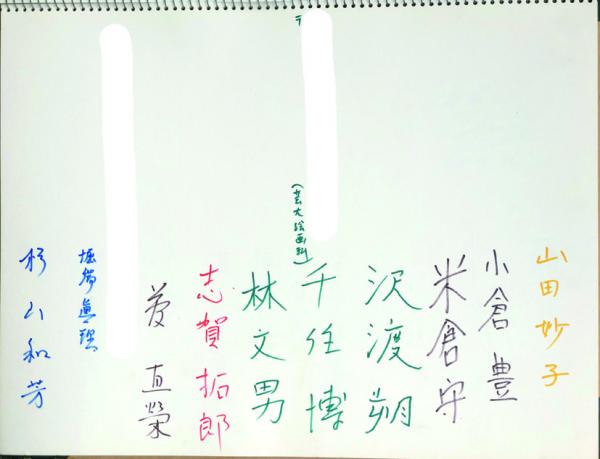 山田妙子
小倉豊
米倉守
沢渡朔
〒
(芸大絵画科)
千住博
林文男
志賀拓郎
直榮
眞理
杉山和芳